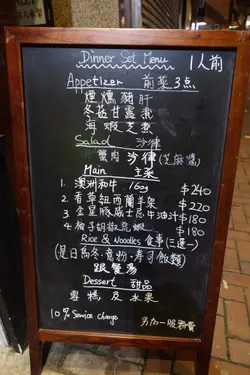 Dinner Set Menu 1人前
Appetizer 前菜3点
煙燻豬肝
冬菇甘露煮
海蝦芝煮
Salad 沙律
蟹肉沙律(芝麻醬)
Main 主菜
1. 澳洲和牛 160g $240
2. 香草紐西蘭羊架 $220
3. 金星豚威士忌牛油汁 $180
4. 柚子胡椒虎蝦 $180
Rice & Noodles 食事(三選一)
(是日窩冬·壽司飯麵)
跟餐湯
Dessert 甜品
雪糕及水果
10% Service charge 另加一服務費